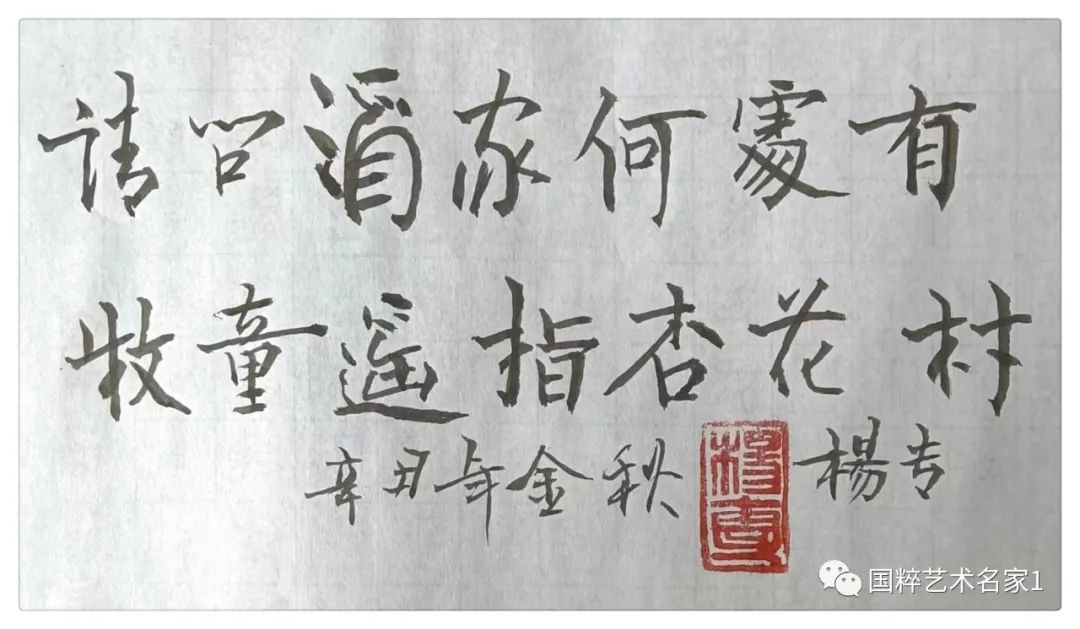 请问酒家何處有
牧童遥指杏花村
辛丑年金秋 楊专
国粹艺术名家1